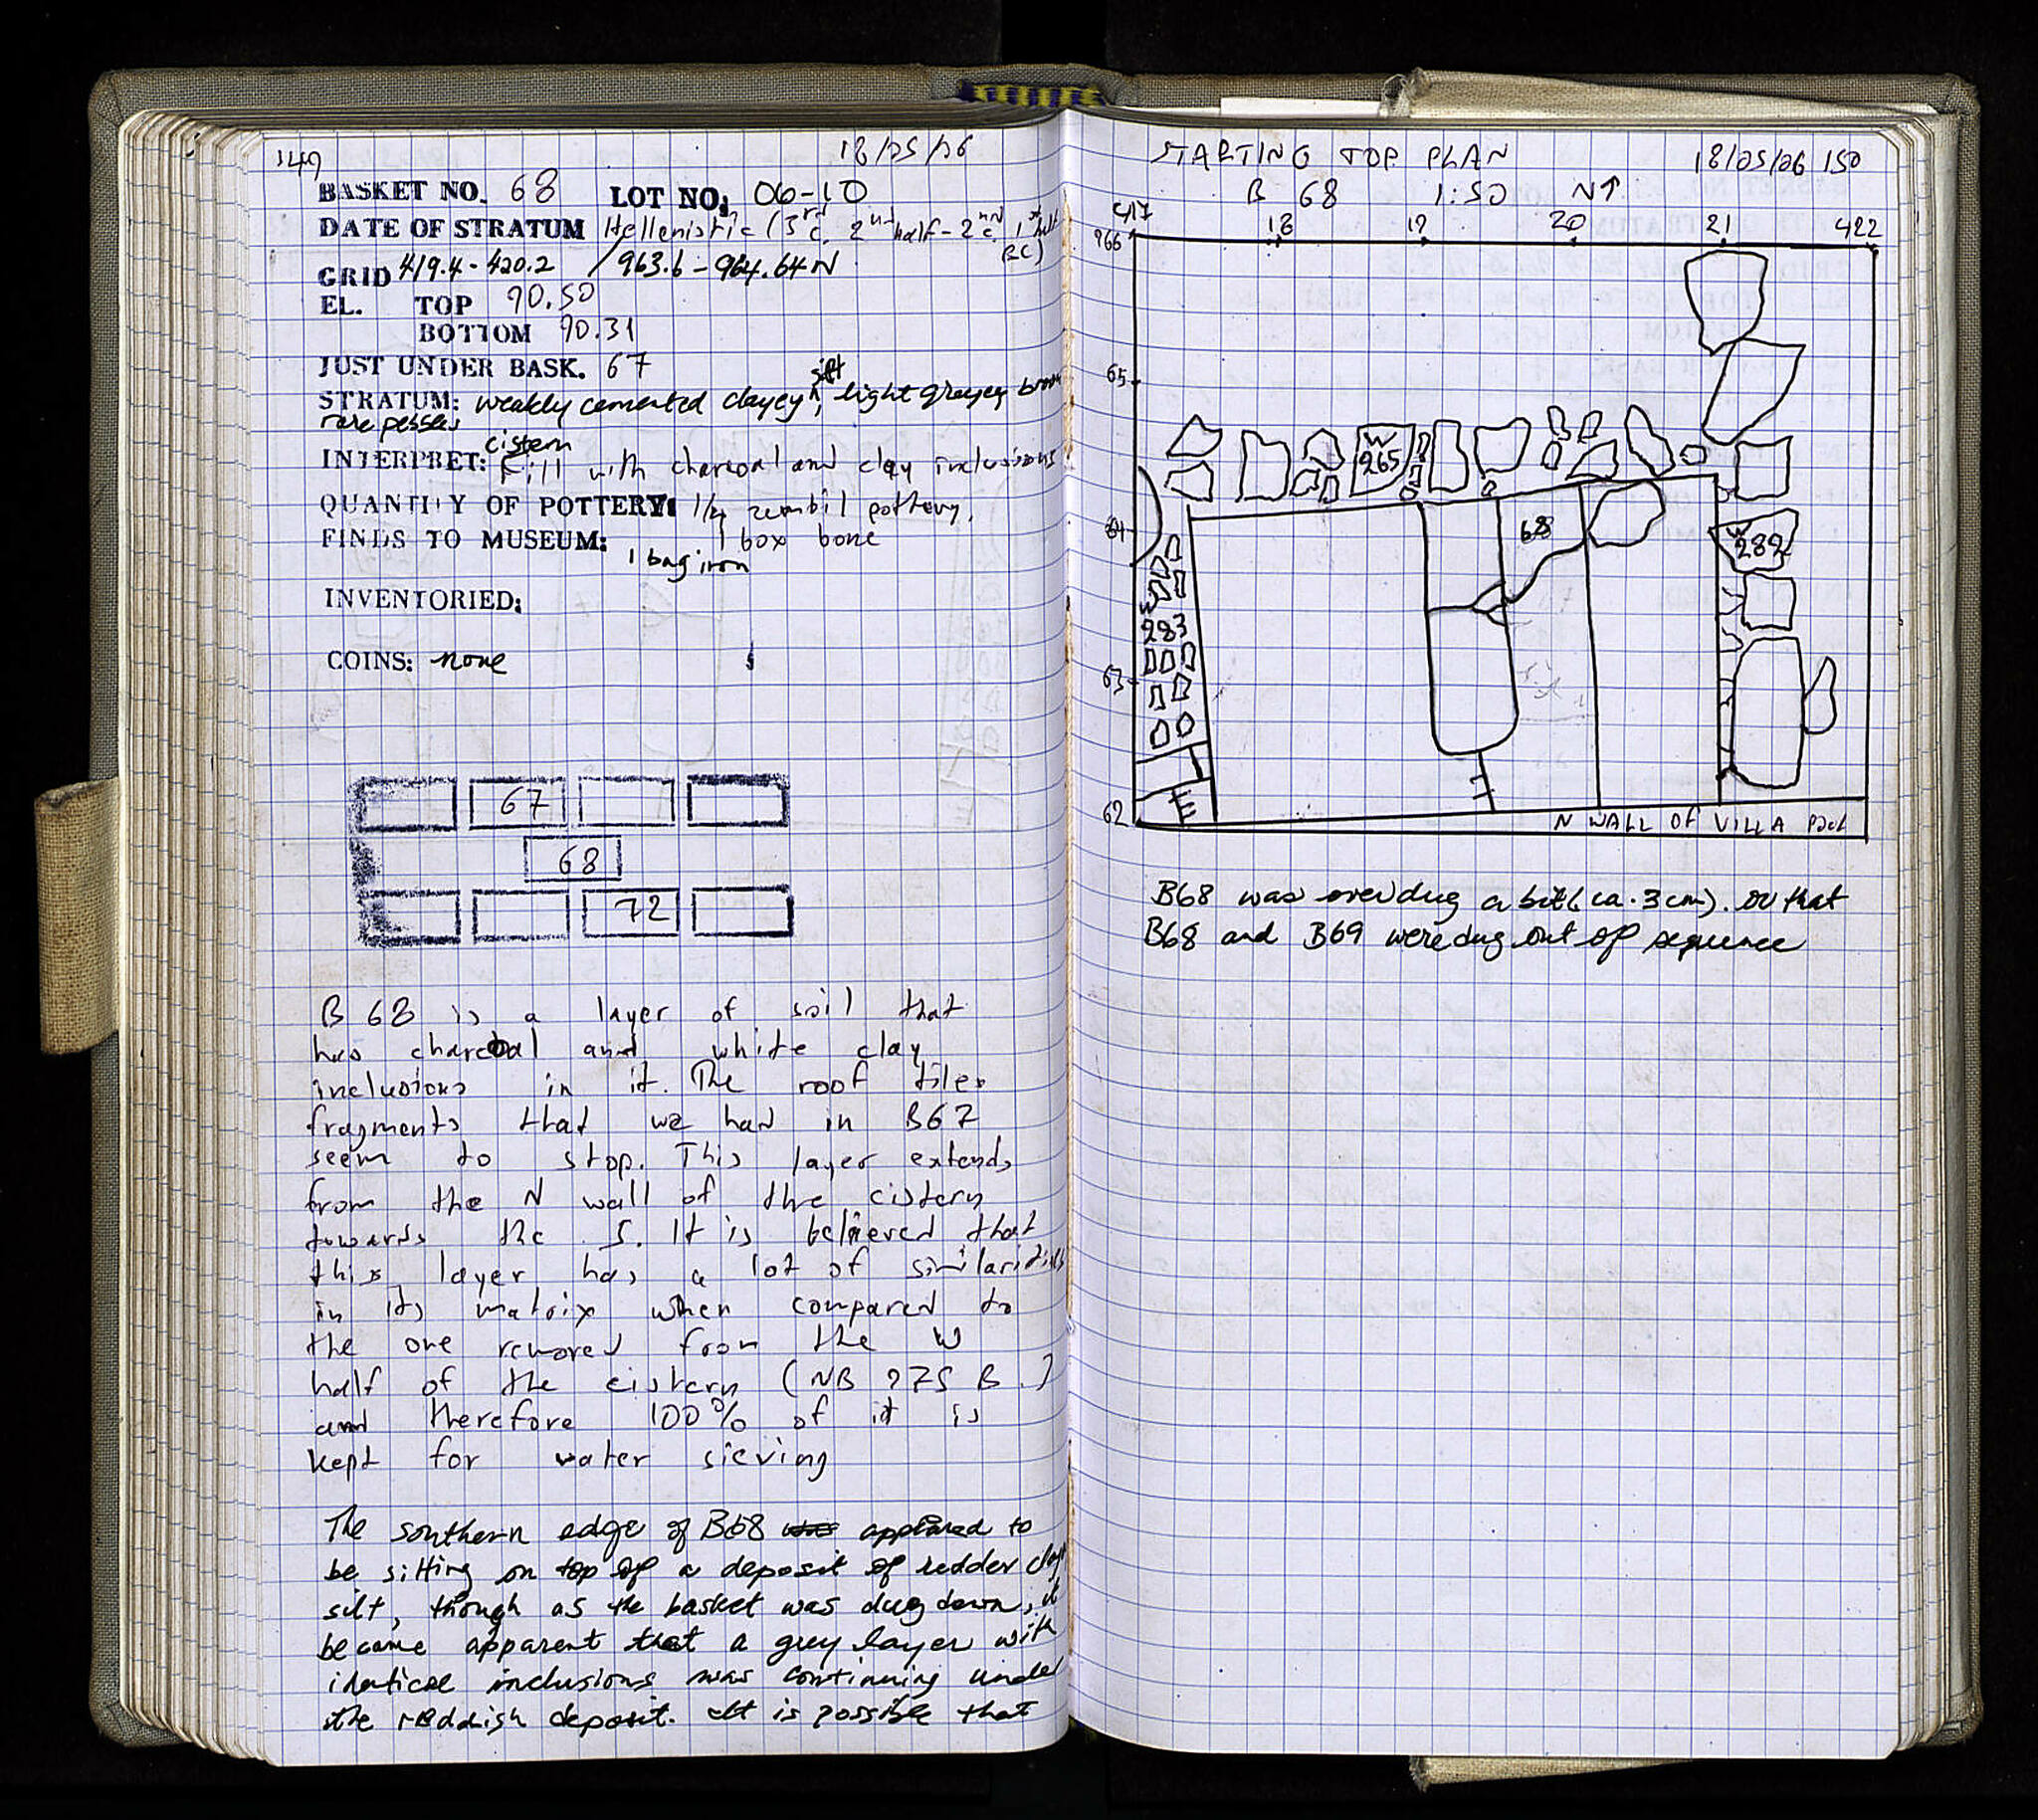 149 18/05/06
BASKET NO. 68 LOT NO: 06-10
DATE OF STRATUM Hellenistic (3rd c. 2nd half - 2nd c. 1st half
BC)
GRID 419.4 - 420.2 / 963.6 - 964.64 N
EL. TOP 90.50
BOTTOM 90.31
JUST UNDER BASK. 67
silt
STRATUM: weakly cemented clayey ^, light greyey brown
rare pebbles
cistern
INTERPRET: Fill with charcoal and clay inclusions
QUANTITY OF POTTERY: 1/4 zembil pottery,
FINDS TO MUSEUM: 1 box bone
1 bag iron
INVENTORIED:
COINS: none
67
68
72
B 68 is a layer of soil that
has charcoal and white clay
inclusions in it. The roof tiles
fragments that we had in B67
seem to stop. This layer extends
from the N wall of the cistern
towards the S. It is believed that
this layer has a lot of similarities
in its matrix when compared to
the one removed from the W
half of the cistern (NB 275 B )
and therefore 100% of it is
kept for water sieving
The southern edge of B68 was appeared to
be sitting on top of a deposit of redder clayey
silt, though as the basket was dug down, it
became apparent that a grey layer with
identical inclusions was continuing under
the reddish deposit. It is possible that
STARTING TOP PLAN 18/05/06 150
B 68 1:50 N↑
417 18 19 20 21 422
966
65
W 265
64
68
W 282
W 283
63
62
N WALL OF VILLA
B68 was overdug a bit (ca. 3 cm). so that
B68 and B69 were dug out of sequence